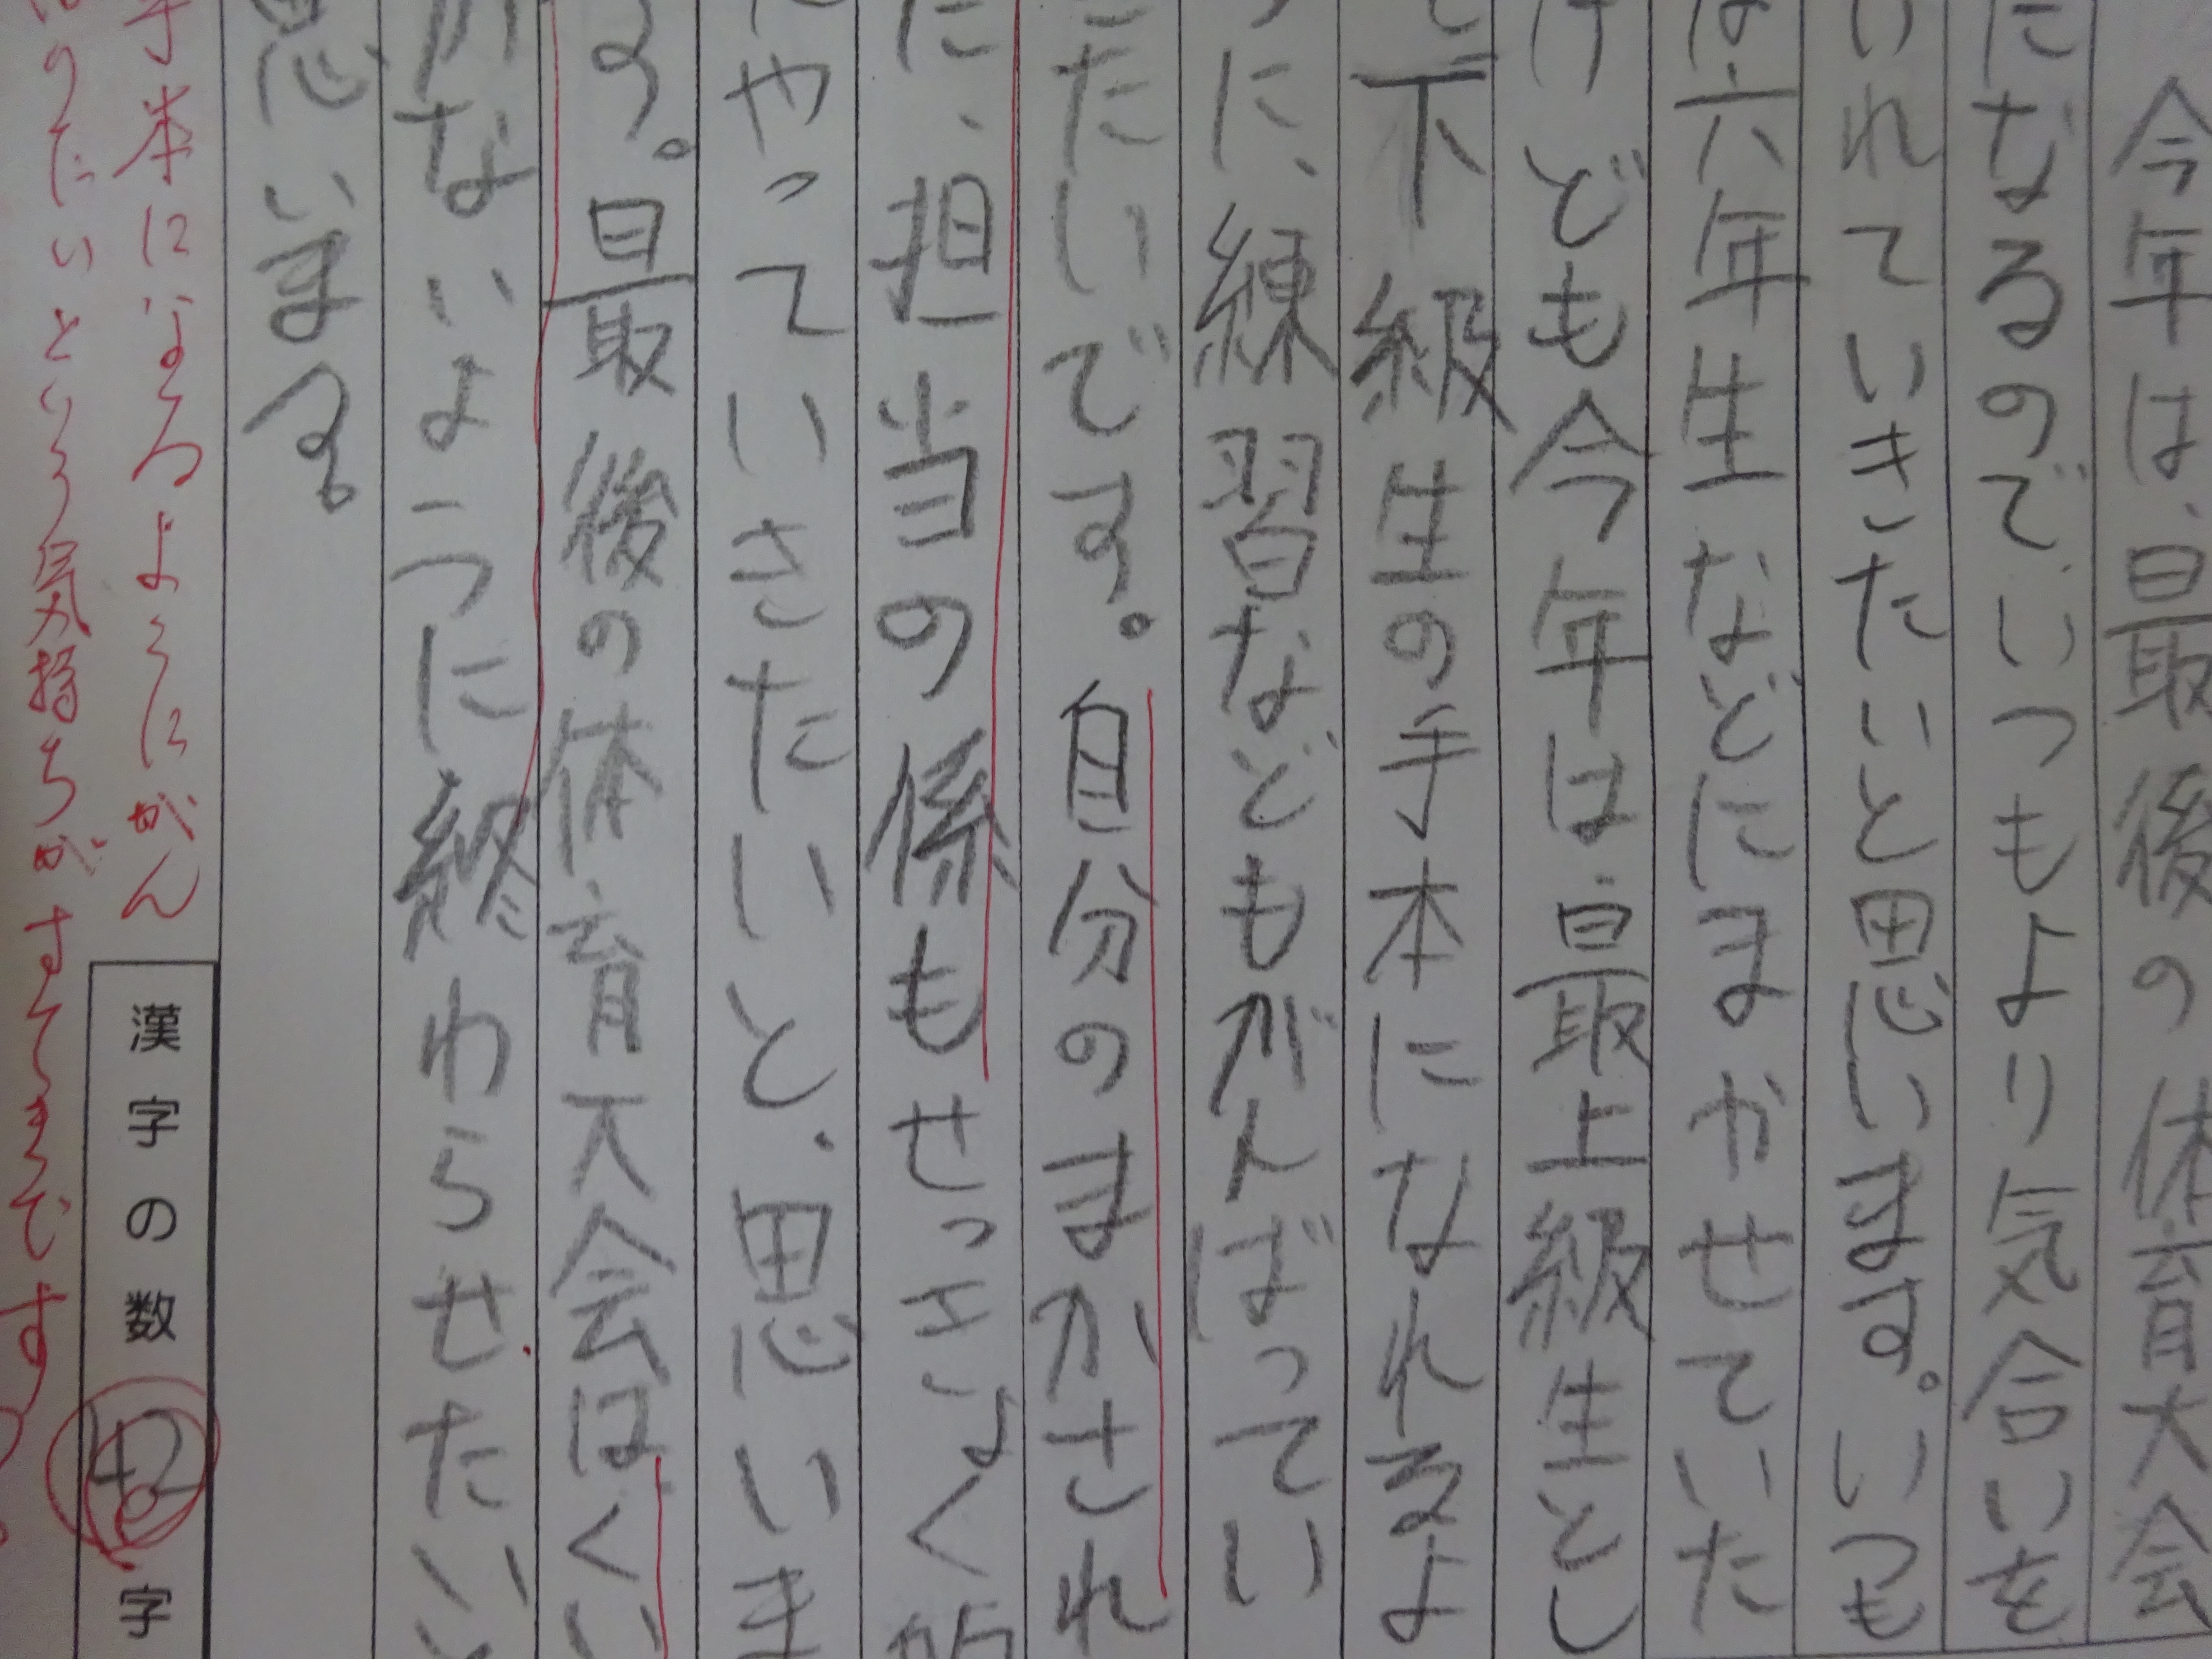 今年は、最後の体育大会
になるので、いつもより気合いを
いれていきたいと思います。いつも
は六年生などにまかせていた
けども今年は最上級生とし
て下級生の手本になれるよ
うに、練習などもがんばってい
きたいです。自分のまかされ
た、担当の係もせっきょく的
にやっていきたいと、思いま
す。最後の体育大会はくい
がないように終わらせたいと
思います。
手本になるようにがん
ばりたいという気持ちがすてきです
漢字の数 42 字